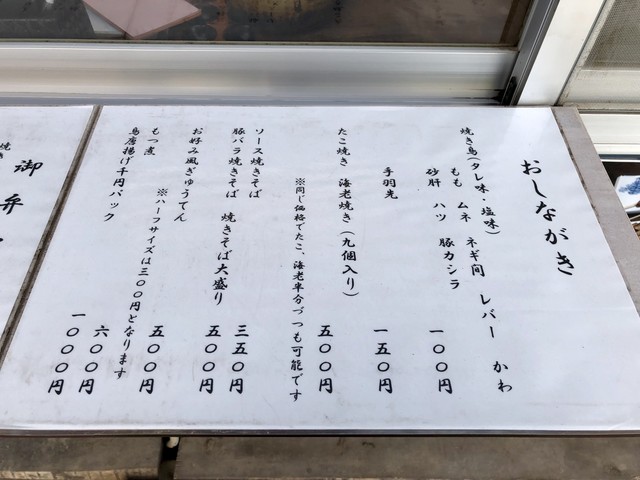 おしながき
焼き鳥(タレ味・塩味)
もも ムネ ネギ間 レバー かわ
砂肝 ハツ 豚カシラ
一〇〇円
手羽先
一五〇円
たこ焼き 海老焼き(九個入り)
五〇〇円
※同じ価格でたこ、海老半分づつも可能です
ソース焼きそば
三五〇円
豚バラ焼きそば 焼きそば大盛り
五〇〇円
お好み風ぎゅうてん
五〇〇円
※ハーフサイズは三〇〇円となります
もつ煮
六〇〇円
鳥唐揚げ千円パック
一〇〇〇円
焼き
御弁